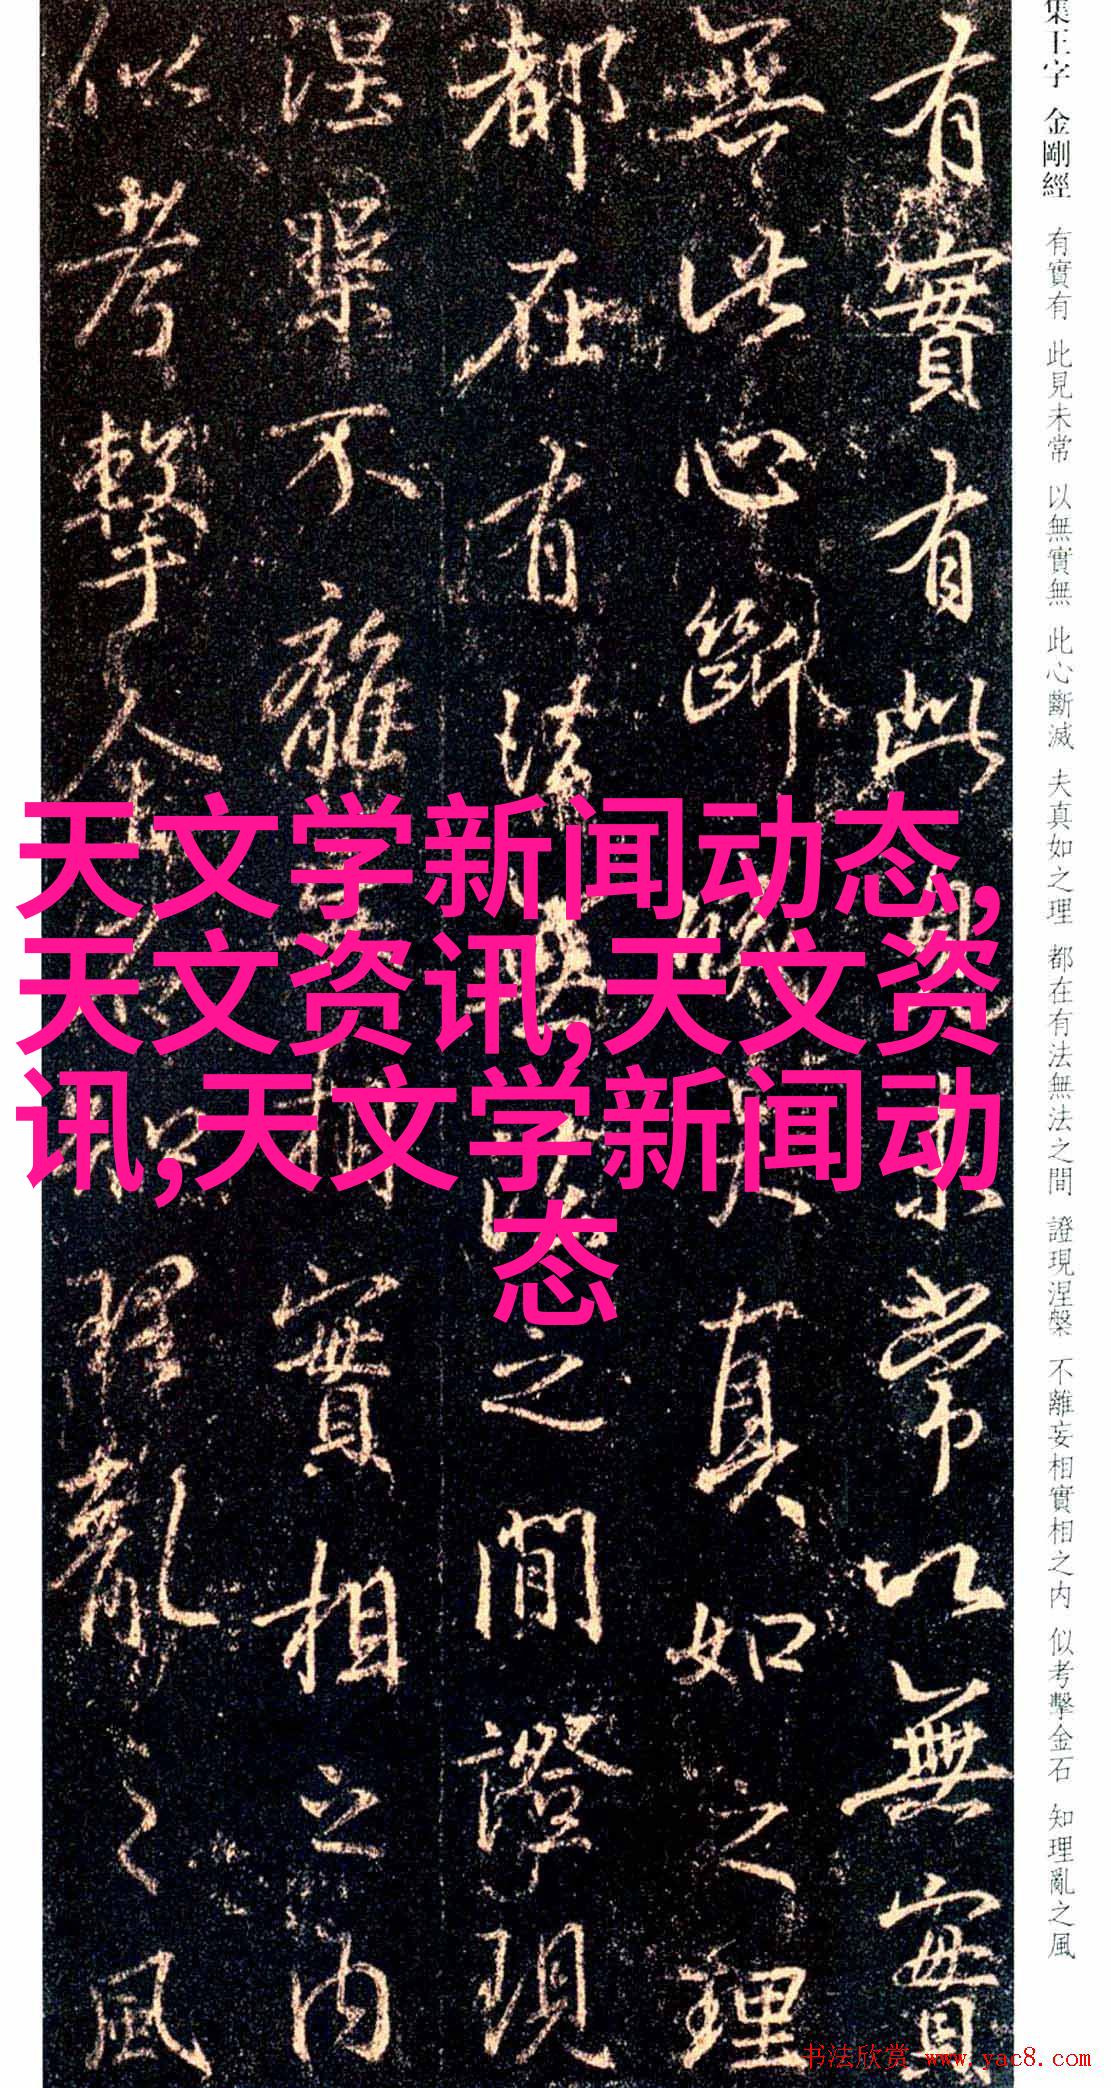 集王字 金剛經 有實有 此見未常 以無實無 此心斷滅 夫真如之理 都在有法無法之間 證現涅槃 不離妄相實相之內 似考擊金石 知理亂之風
有實有此見未常以無實
無此心斷滅夫真如之理
都在有法無法之間證現
涅槃不離妄相實相之內
似考擊金石知理亂之風
天文学新闻动态,
天文资讯,天文资
讯,天文学新闻动
态
书法欣赏 www.yac8.com